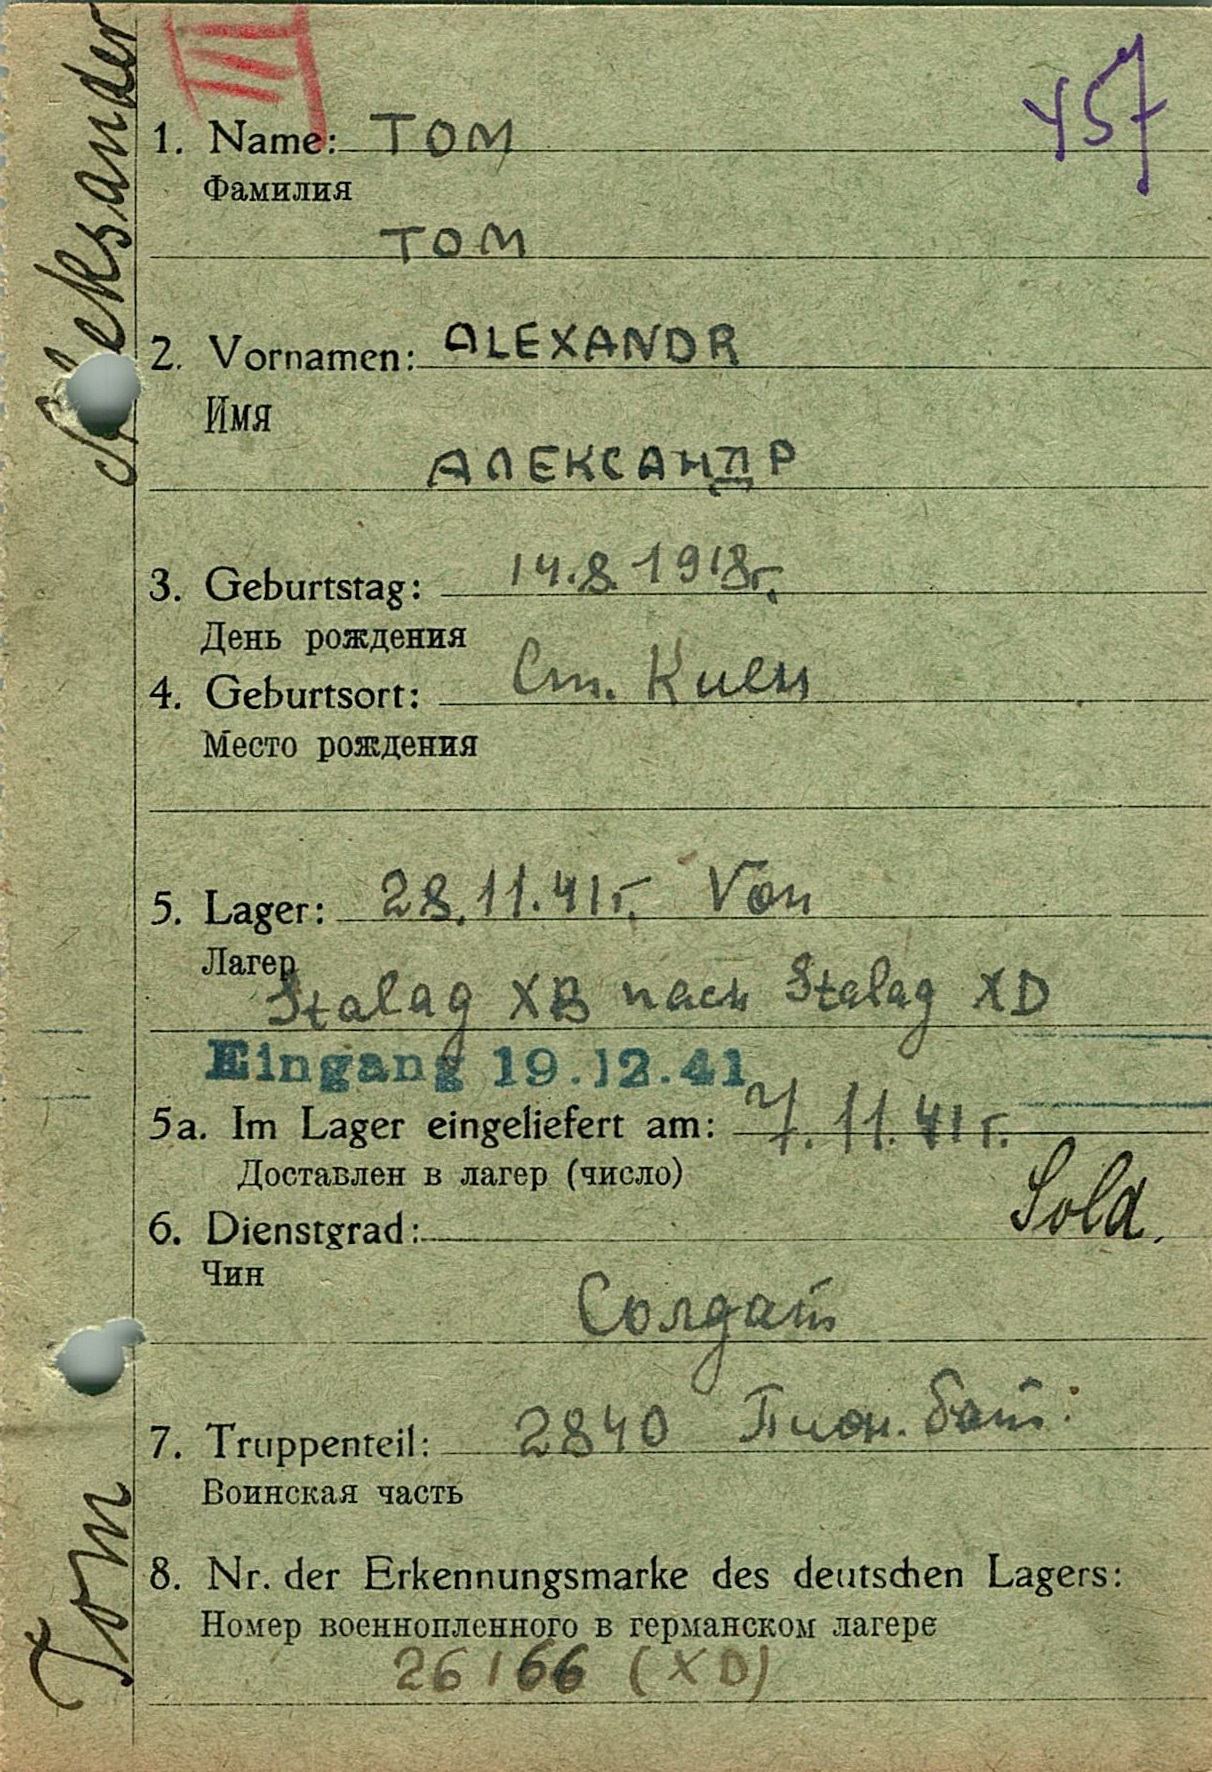 III
457
1. Name: TOM
Фамилия
ТОМ
2. Vornamen: ALEXANDR
Имя
АЛЕКСАНДР
3. Geburtstag: 14.8.1918г.
День рождения
4. Geburtsort: Ст. Киен
Место рождения
5. Lager: 28.11.41г. Von
Лагер
Stalag XB nach Stalag XD
Eingang 19.12.41
5a. Im Lager eingeliefert am: 7.11.41г.
Доставлен в лагер (число)
Sold.
6. Dienstgrad:
Чин
Солдат
7. Truppenteil: 2840 Пион. бат.
Воинская часть
8. Nr. der Erkennungsmarke des deutschen Lagers:
Номер военнопленного в германском лагере
26166 (XD)
Tom Aleksander